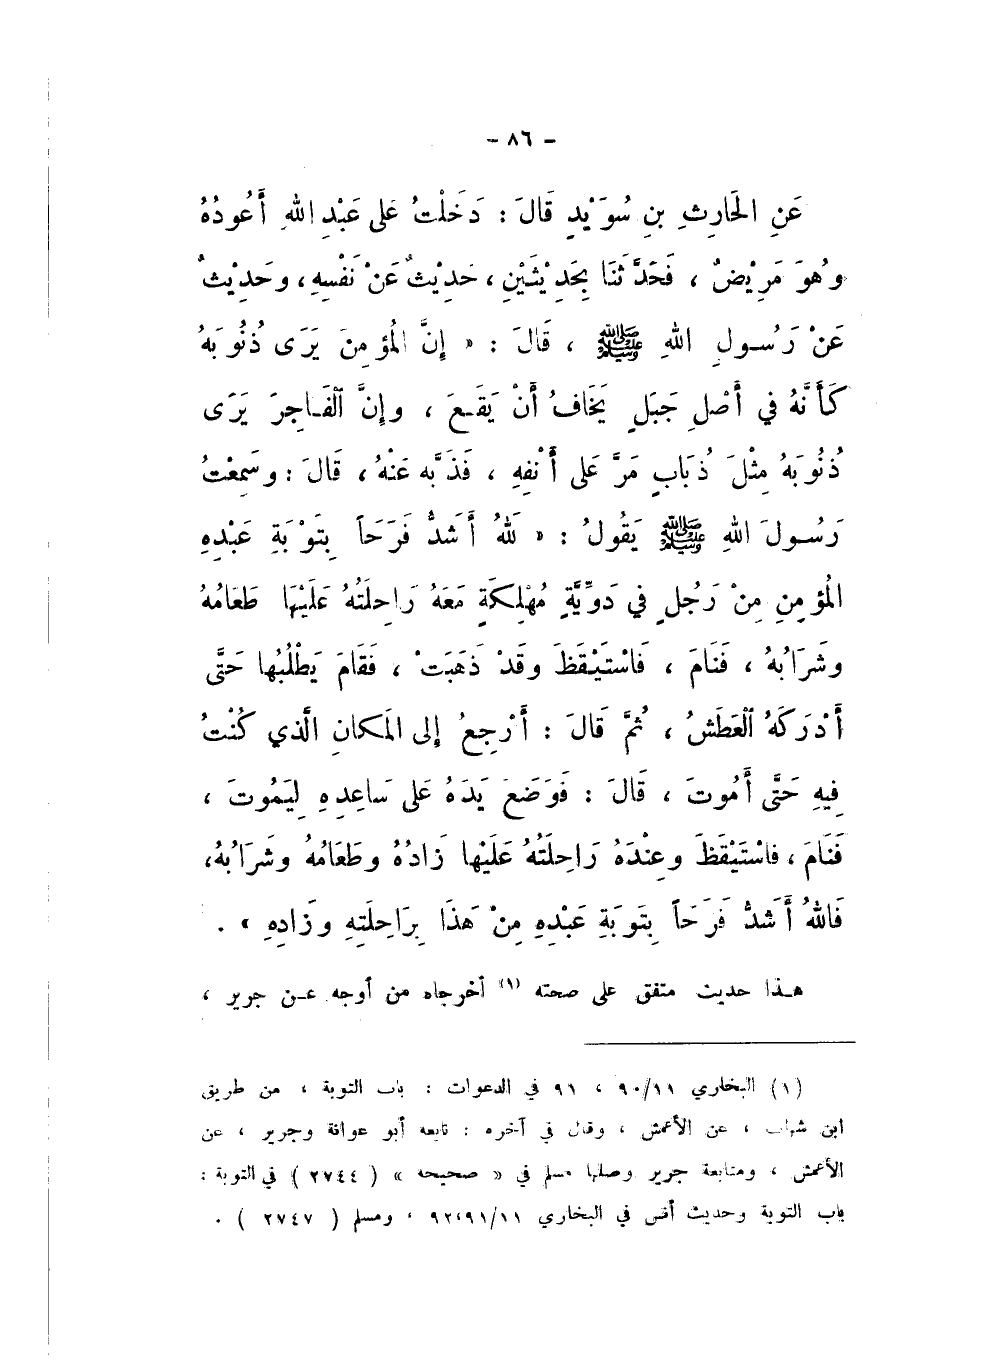 - ٨٦ -
عَنِ الحَارِثِ بنِ سُوَيْدٍ قَالَ : دَخَلْتُ عَلى عَبْدِ اللهِ أَعُودُهُ
وهُوَ مَرِيْضٌ ، فَحَدَّثَنَا بِحَدِيْثَيْنِ ، حَدِيْثٌ عَنْ نَفْسِهِ ، وَحَدِيْثٌ
عَنْ رَسُولِ اللهِ ﷺ ، قَالَ : « إِنَّ المُؤمِنَ يَرَى ذُنُوبَهُ
كَأَنَّهُ في أَصْلِ جَبَلٍ يَخَافُ أَنْ يَقَعَ ، وإِنَّ الْفَاجِرَ يَرَى
ذُنُوبَهُ مِثْلَ ذُبَابٍ مَرَّ عَلى أَنْفِهِ ، فَذَبَّه عَنْهُ ، قَالَ : وسَمِعْتُ
رَسُولَ اللهِ ﷺ يَقُولُ : « لَلهُ أَشَدُّ فَرَحَاً بِتَوْبَةِ عَبْدِهِ
المُؤمِنِ مِنْ رَجُلٍ في دَوِّيَّةٍ مُهْلِكَةٍ مَعَهُ رَاحِلَتُهُ عَلَيْهَا طَعَامُهُ
وشَرَابُهُ ، فَنَامَ ، فَاسْتَيْقَظَ وقَدْ ذَهَبَتْ ، فَقَامَ يَطْلُبُها حَتَّى
أَدْرَكَهُ الْعَطَشُ ، ثُمَّ قَالَ : أَرْجِعُ إلى المَكانِ الَّذي كُنْتُ
فِيهِ حَتَّى أَمُوتَ ، قَالَ : فَوَضَعَ يَدَهُ عَلى سَاعِدِهِ لِيَمُوتَ ،
فَنَامَ ، فاسْتَيْقَظَ وعِنْدَهُ رَاحِلَتُهُ عَلَيْها زَادُهُ وطَعَامُهُ وشَرَابُهُ،
فَاللهُ أَشَدُّ فَرَحَاً بِتَوبَةِ عَبْدِهِ مِنْ هَذَا بِرَاحِلَتِهِ وَزَادِهِ » .
هـذا حديث متفق على صحته (١) أخرجاه من أوجه عـن جرير ،
(١) البخاري ٩٠/١١ ، ٩١ في الدعوات : باب التوبة ، من طريق
ابن شهاب ، عن الأعمش ، وقال في آخره : تابعه أبو عوانة وجرير ، عن
الأعمش ، ومتابعة جرير وصلها مسلم في « صحيحه » ( ٢٧٤٤ ) في التوبة :
باب التوبة وحديث أنس في البخاري ٩٢،٩١/١١ ، ومسلم ( ٢٧٤٧ ) .